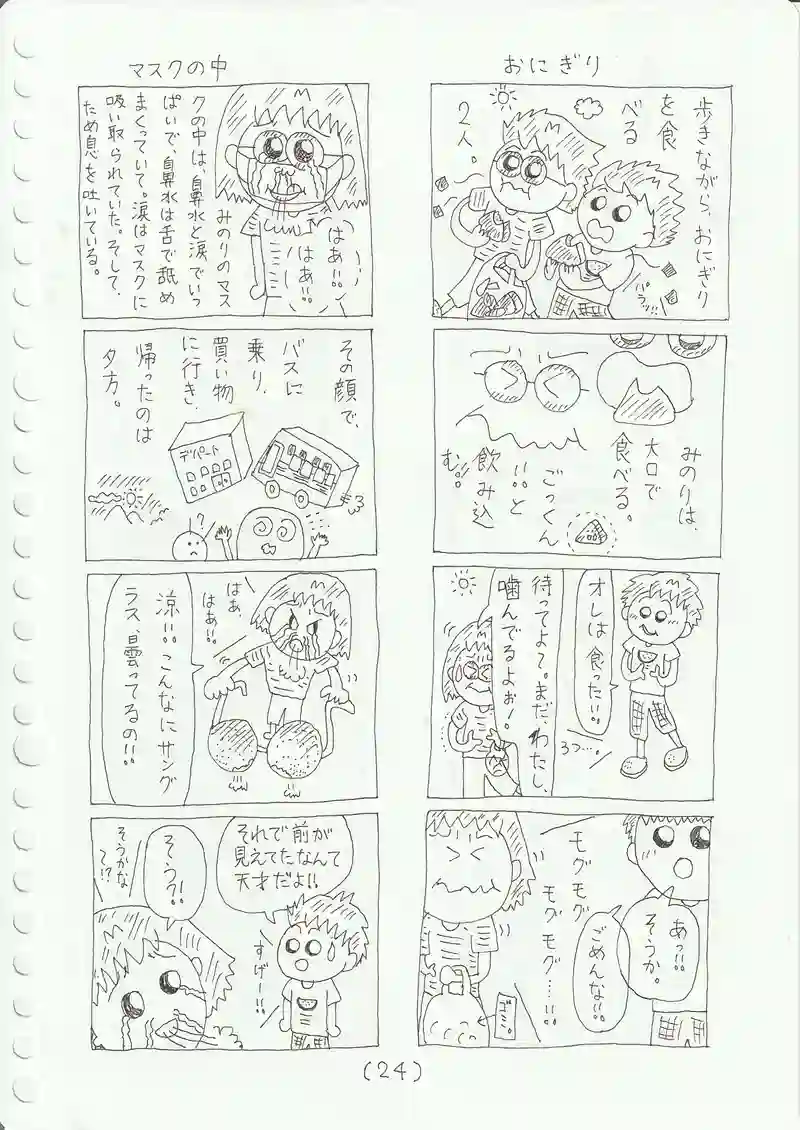 おにぎり
歩きながら、おにぎり
を食
べる
2人。
パラッ
みのりは、
大口で
食べる。
ごっくん
!!と
飲み込
む!!
オレは食った!!
ろつ…
待ってよ〜。まだ、わたし、
噛んでるよぉ!
あっ!!
そうか。
ごめんな!!
モグモグ
モグモグ…!!
ゴミ。
マスクの中
みのりのマス
クの中は、鼻水と涙でいっ
ぱいで、鼻水は舌で舐め
まくっていて。涙はマスクに
吸い取られていた。そして、
ため息を吐いている。
はあ!!
はあ!!
その顔で、
バスに
乗り、
買い物
に行き、
帰ったのは
夕方。
デパート
?
はぁ、
はぁ!!
涼!!こんなにサング
ラス、曇ってるの!!
それで前が
見えてたなんて
天才だよ!!
すげー!!
そう?!
そうかな
〜!?
(24)